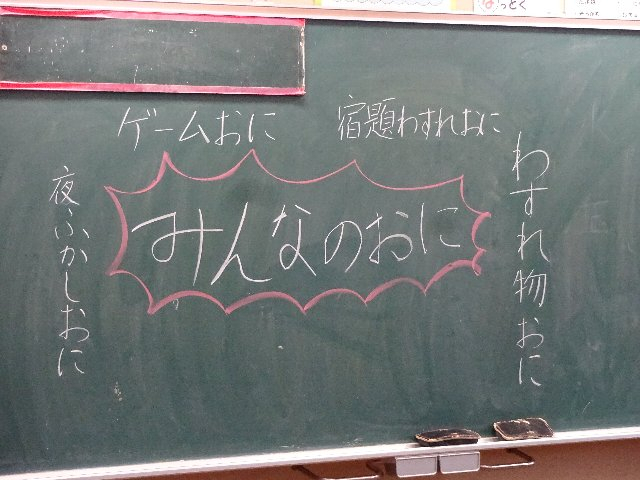 っとく
ゲームおに
宿題わすれおに
わすれ物おに
みんなのおに
夜ふかしおに